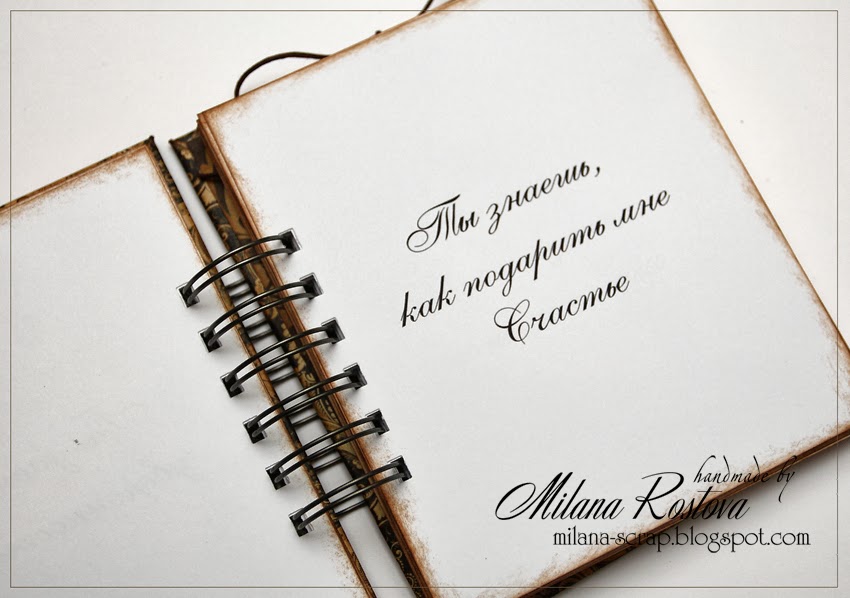 Ты знаешь,
как подарить мне
Счастье
handmade by
Milana Rostova
milana-scrap.blogspot.com